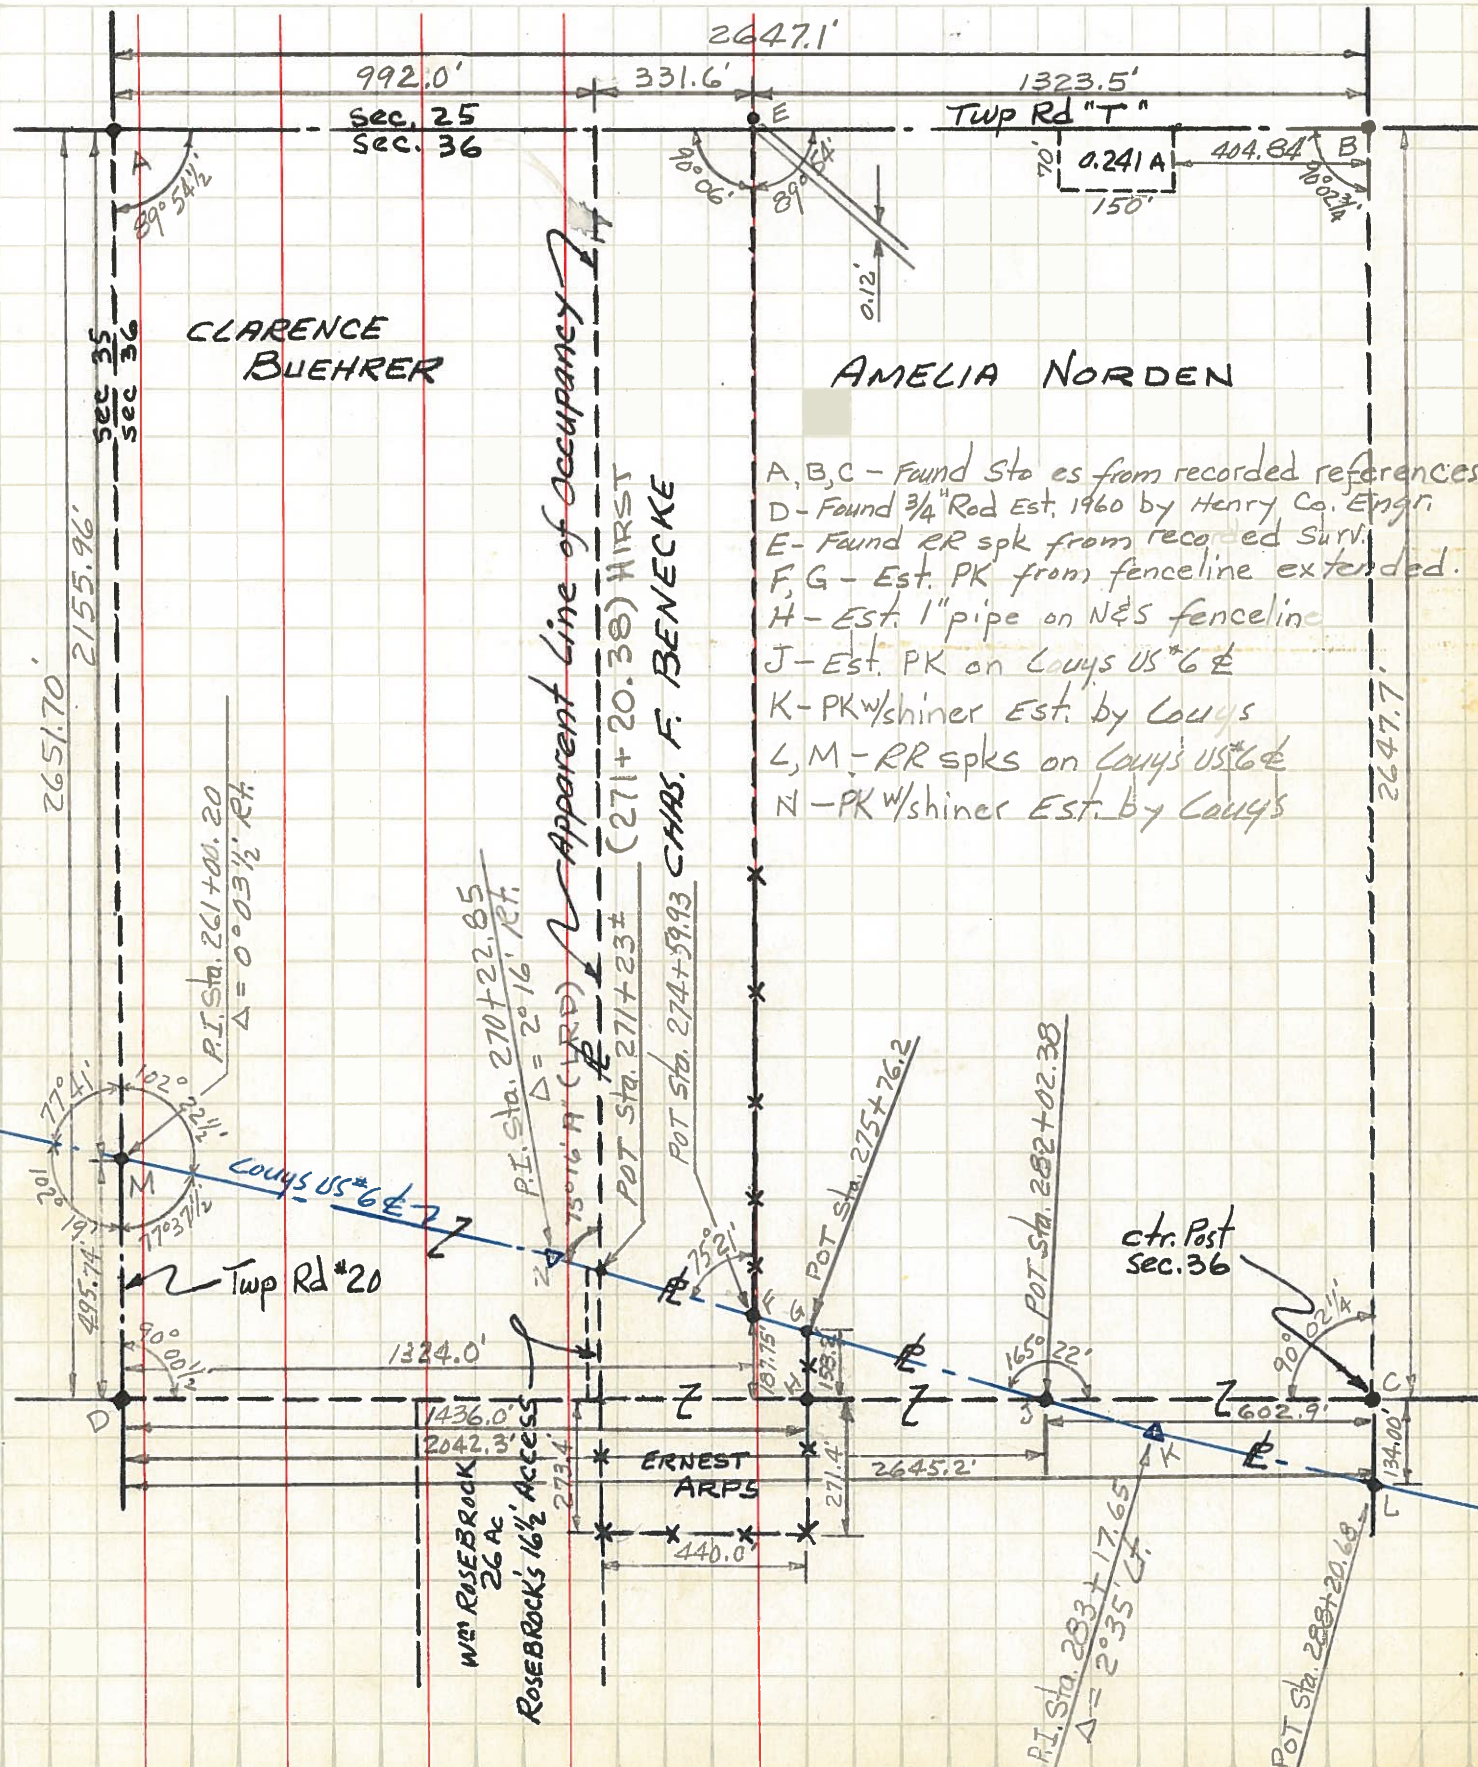 2647.1'
992.0'
331.6'
1323.5'
Sec. 25
Sec. 36
E
Twp Rd "T"
A
B
89° 54½'
90° 06'
89° 54'
70'
0.241 A
150'
404.84'
90° 02¾'
0.12'
Sec 35
Sec 36
CLARENCE
BUEHRER
AMELIA NORDEN
2651.70'
2155.96'
Apparent Line of Occupancy
(271+20.38) HIRST
CHAS. F. BENECKE
A, B, C - Found Sto es from recorded references
D - Found 3/4" Rod Est. 1960 by Henry Co. Engr.
E - Found RR spk from reco ed Surv.
F, G - Est. PK from fenceline extended.
H - Est. 1" pipe on N&S fencelin
J - Est. PK on Louys US #6 ℄
K - PK w/shiner Est. by Lou s
L, M - RR spks on Louy's US #6 ℄
N - PK w/shiner Est. by Louy's
2647.7'
P.I. Sta. 261+00.20
Δ = 0° 03½' Rt.
P.I. Sta. 270+22.85
Δ = 2° 16' Rt.
75° 16' "A" (LRD)
POT Sta. 271+23±
POT Sta. 274+59.93
POT Sta. 275+76.2
POT Sta. 282+02.38
77° 41'
102° 22½'
102° 19'
77° 37½'
M
Louys US #6 ℄
N
75° 21'
F
G
Twp Rd #20
495.74'
90° 00½'
1324.0'
187.75'
158.2'
H
ctr. Post
Sec. 36
165° 22'
90° 02¼'
D
J
C
1436.0'
2042.3'
2645.2'
602.9'
K
134.00'
L
ERNEST
ARPS
273.4'
271.4'
440.0'
Wm ROSEBROCK
26 Ac
ROSEBROCK'S 16½' ACCESS
P.I. Sta. 283+17.65
Δ = 2° 35' Lt.
POT Sta. 288+20.68